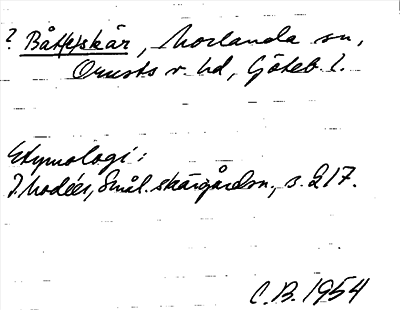 ? Båt(e)skär, Morlanda sn,
Orusts v. hd, Göteb. l.
Etymologi:
I. Modéer, Smål. skärgårdsn., s. 217.
C. B. 1954